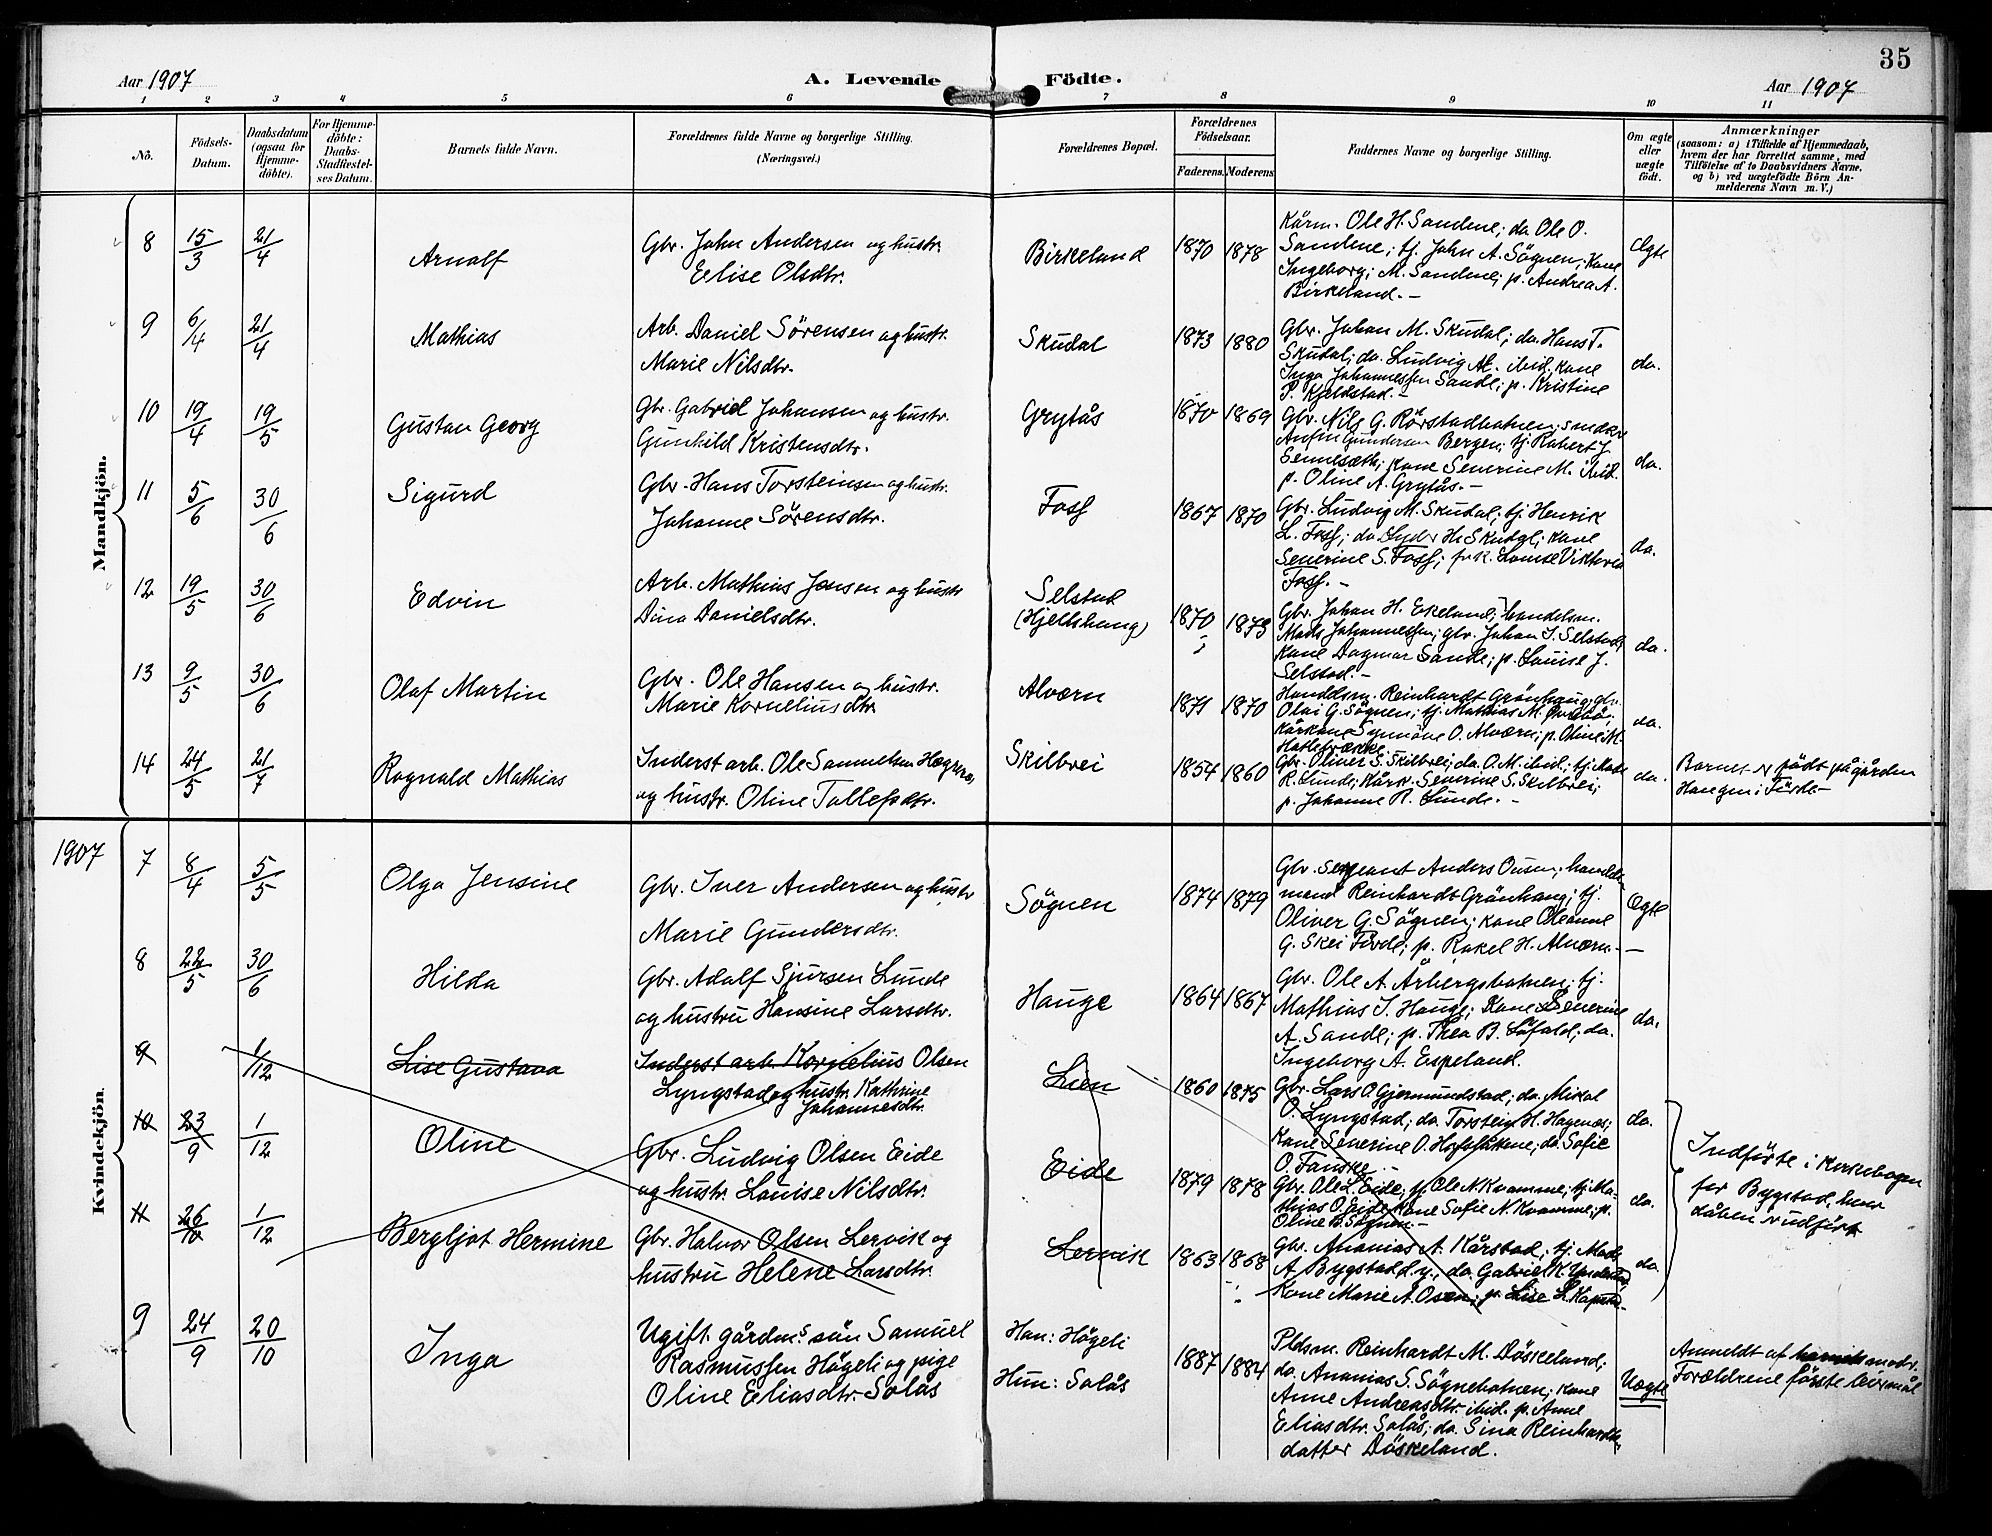 35
Aar 1907
A. Levende Födte.
Aar 1907
1 2 3 4 5 6 7 8 9 10 11
No.
Födsels-
Datum.
Daabsdatum
(ogsaa for
Hjemme-
döbte).
For Hjemme-
döbte:
Daabs-
Stadfæstel-
ses Datum.
Barnets fulde Navn.
Forældrenes fulde Navne og borgerlige Stilling.
(Næringsvei.)
Forældrenes Bopæl.
Forældrenes
Födselsaar.
Faderens. Moderens.
Faddernes Navne og borgerlige Stilling.
Om ægte
eller
uægte
födt.
Anmærkninger
(saasom: a) i Tilfælde af Hjemmedaab,
hvem der har forrettet samme, med
Tilföielse af to Daabsvidners Navne,
og b) ved uægtefödte Börn An-
melderens Navn m. V.)
Mandkjön.
8 15/3 21/4
Arnolf
Gbr. John Andersen og hustr.
Elise Olsdtr.
Birkeland
1870 1878
Kårm. Ole H. Sandene; do Ole O.
Sandene; tj. John A. Sögnen; Kone
Ingeborg; M. Sandene; p. Andrea A.
Birkeland.-
Ægte
9 6/4 21/4
Mathias
Arb. Daniel Sörensen og hustr.
Marie Nilsdtr.
Skudal
1873 1880
Gbr. Johan M. Skudal; do. Hans T.
Skudal; do. Ludvig M. ibid, kone
Inga Johannessen Sande; p. Kristine
P. Kjeldstad.-
do.
10 19/4 19/5
Gustav Georg
Gbr. Gabriel Johansen og hustr.
Gunhild Kristensdtr.
Grytås
1870 1869
Gbr. Nils G. Rörstadbotnen; snedkr
Anfin Gundersen Bergen; tj. Robert J.
Sennesæth; Kone Severine M. ibid.
p. Oline A. Grytås.-
do.
11 5/6 30/6
Sigurd
Gbr. Hans Torsteinsen og hustr.
Johanne Sörensdtr.
Foss
1867 1870
Gbr. Ludvig M. Skudal; tj. Henrik
L. Foss; do. H. Skudal; kone
Severine S. Foss; Louise Viktoria
Foss.-
do.
12 19/5 30/6
Edvin
Arb. Mathias Jensen og hustr
Dina Danielsdtr.
Selstad
(Hjellehaug)
1870 1873
Gbr. Johan H. Ekeland; handelsm.
Mads Johannessen; gbr. Johan J. Selstad;
Kone Dagmar Sande; p. Louise J.
Selstad.-
do.
13 9/5 30/6
Olaf Martin
Gbr. Ole Hansen og hustr.
Marie Korneliusdtr
Alværn
1871 1870
Handelsm. Reinhardt Grönhaug; gbr.
Olai G. Sögnen; tj. Mathias M.
Kårkone Synnöve O. Alværn; p. Oline M.
Hatlebrække.
do.
14 24/5 21/7
Ragnald Mathias
Inderst arb. Ole Samuelsen
og hustr. Oline Tollefsdtr.
Skilbrei
1854 1860
Gbr. Oliver S. Skilbrei; do. O. M. ibid.; tj. Mads
R. Lunde; Kårk. Severine S. Skilbrei;
p. Johanne R. Lunde.-
do.
Barnet er födt på gården
Haugen i Förde.-
1907
Kvindekjön.
7 8/4 5/5
Olga Jensine
Gbr. Iver Andersen og hustr
Marie Gundersdtr.
Sögnen
1874 1879
Gbr. Sergeant Anders Ousen; handels-
mand Reinhardt Grönhaug; tj.
Oliver G. Sögnen; Kone Oleanne
G. Skei Förde; p. Rakel H. Alværn.-
Ægte
8 22/5 30/6
Hilda
Gbr. Adolf Sjursen Lunde
og hustru Hansine Larsdtr.
Hauge
1864 1867
Gbr. Ole A. Årbergsbotnen; tj.
Mathias J. Hauge; Kone Severine
A. Sande; p. Thea B. Låfald; do.
Ingeborg A. Espeland.
do.
9 1/12
Lise Gustava
Inderst arb. Kornelius Olsen
Lyngstad og hustr. Kathrine
Johannesdtr.
Lien
1860 1875
Gbr. Lars O. Gjermundstad; do. Mikal
O. Lyngstad; do. Torstein H. Hagenæs;
Kone Severine O. do. Sofie
O. Fauske.-
do.
10 23/9 1/12
Oline
Gbr. Ludvig Olsen Eide
og hustr. Louise Nilsdtr.
Eide
1879 1878
Gbr. Ole L. Eide; tj. Ole N. Kvamme; tj. Ma-
thias O. Eide; Kone Sofie N. Kvamme; p.
Oline B. Sögnen.-
do.
11 26/10 1/12
Bergljot Hermine
Gbr. Halvor Olsen Lervik og
hustru Helene Larsdtr.
Lervik
1863 1868
Gbr. Ananias A. Kårstad; tj. Mads
A. Bygstad d.y.; do. Gabriel K.
Kone Marie A. Osen; p. Lise L.
do.
Indförte i Kirkebogen
for Bygstad, hvor
dåben er udfört
9 24/9 20/10
Inga
Ugift gårdms sön Samuel
Rasmussen Högeli og pige
Oline Eliasdtr. Solås
Han: Högeli
Hun: Solås
1887 1884
Pldsm. Reinhardt M. Döskeland;
do. Ananias S. Sögnebotnen; Kone
Anne Andreasdtr. ibid. p. Anne
Eliasdtr. Solås; do. Sina Reinhardts-
datter Döskeland.
Uægte
Anmeldt af modr.
Forældrene förste leirmål